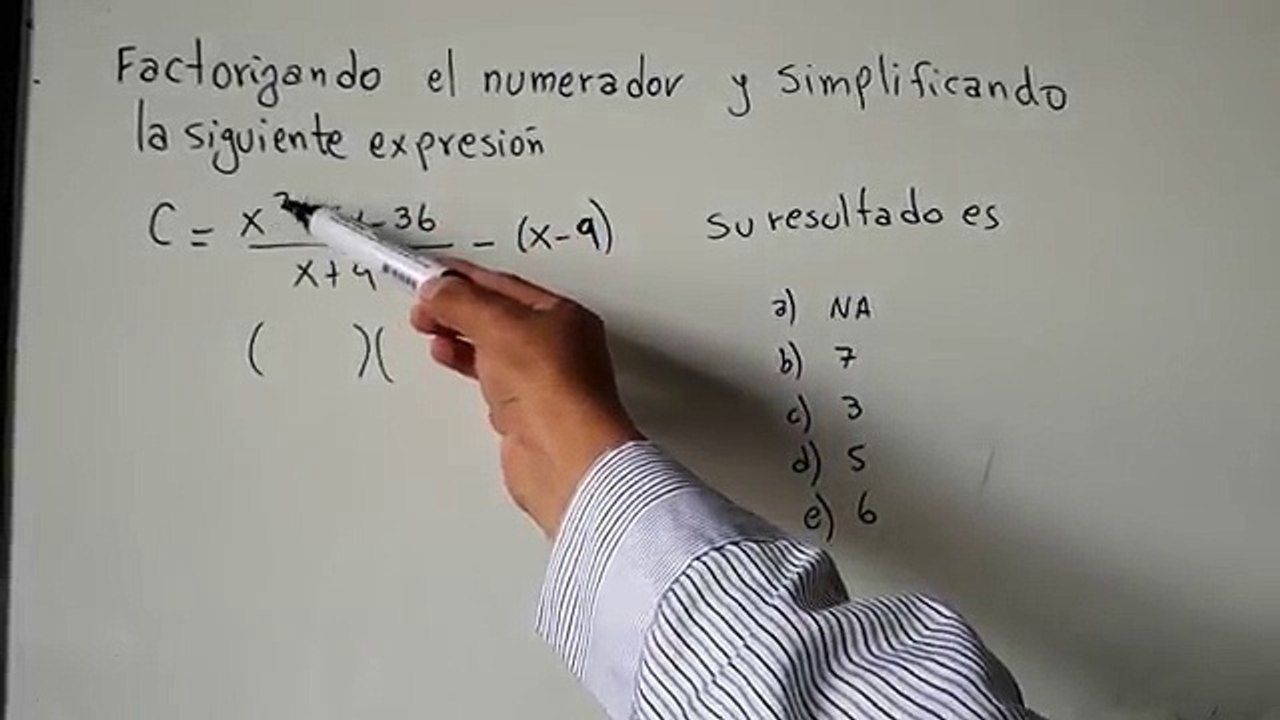 Factorizando el numerador y simplificando
la siguiente expresión
C = x - 36 / x+4 - (x-9) su resultado es
( )(
a) NA
b) 7
c) 3
d) 5
e) 6